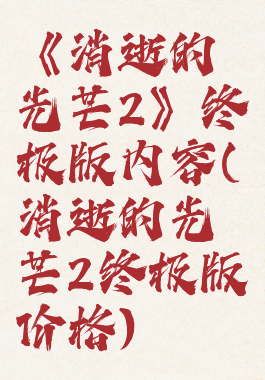 《消逝的
光芒2》终
极版内容(
消逝的光
芒2终极版
价格)